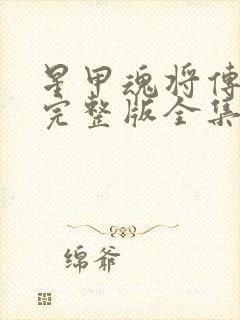 星甲魂将传
完整版全集
绵爷